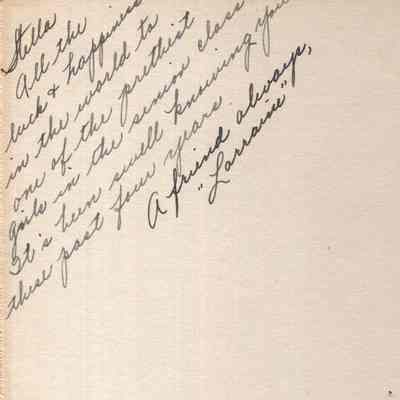 Stella
All the
luck & happiness
in the world to
one of the prettiest
girls in the senior class
It's been swell knowing you
these past four years.
A friend always,
"Lorraine"